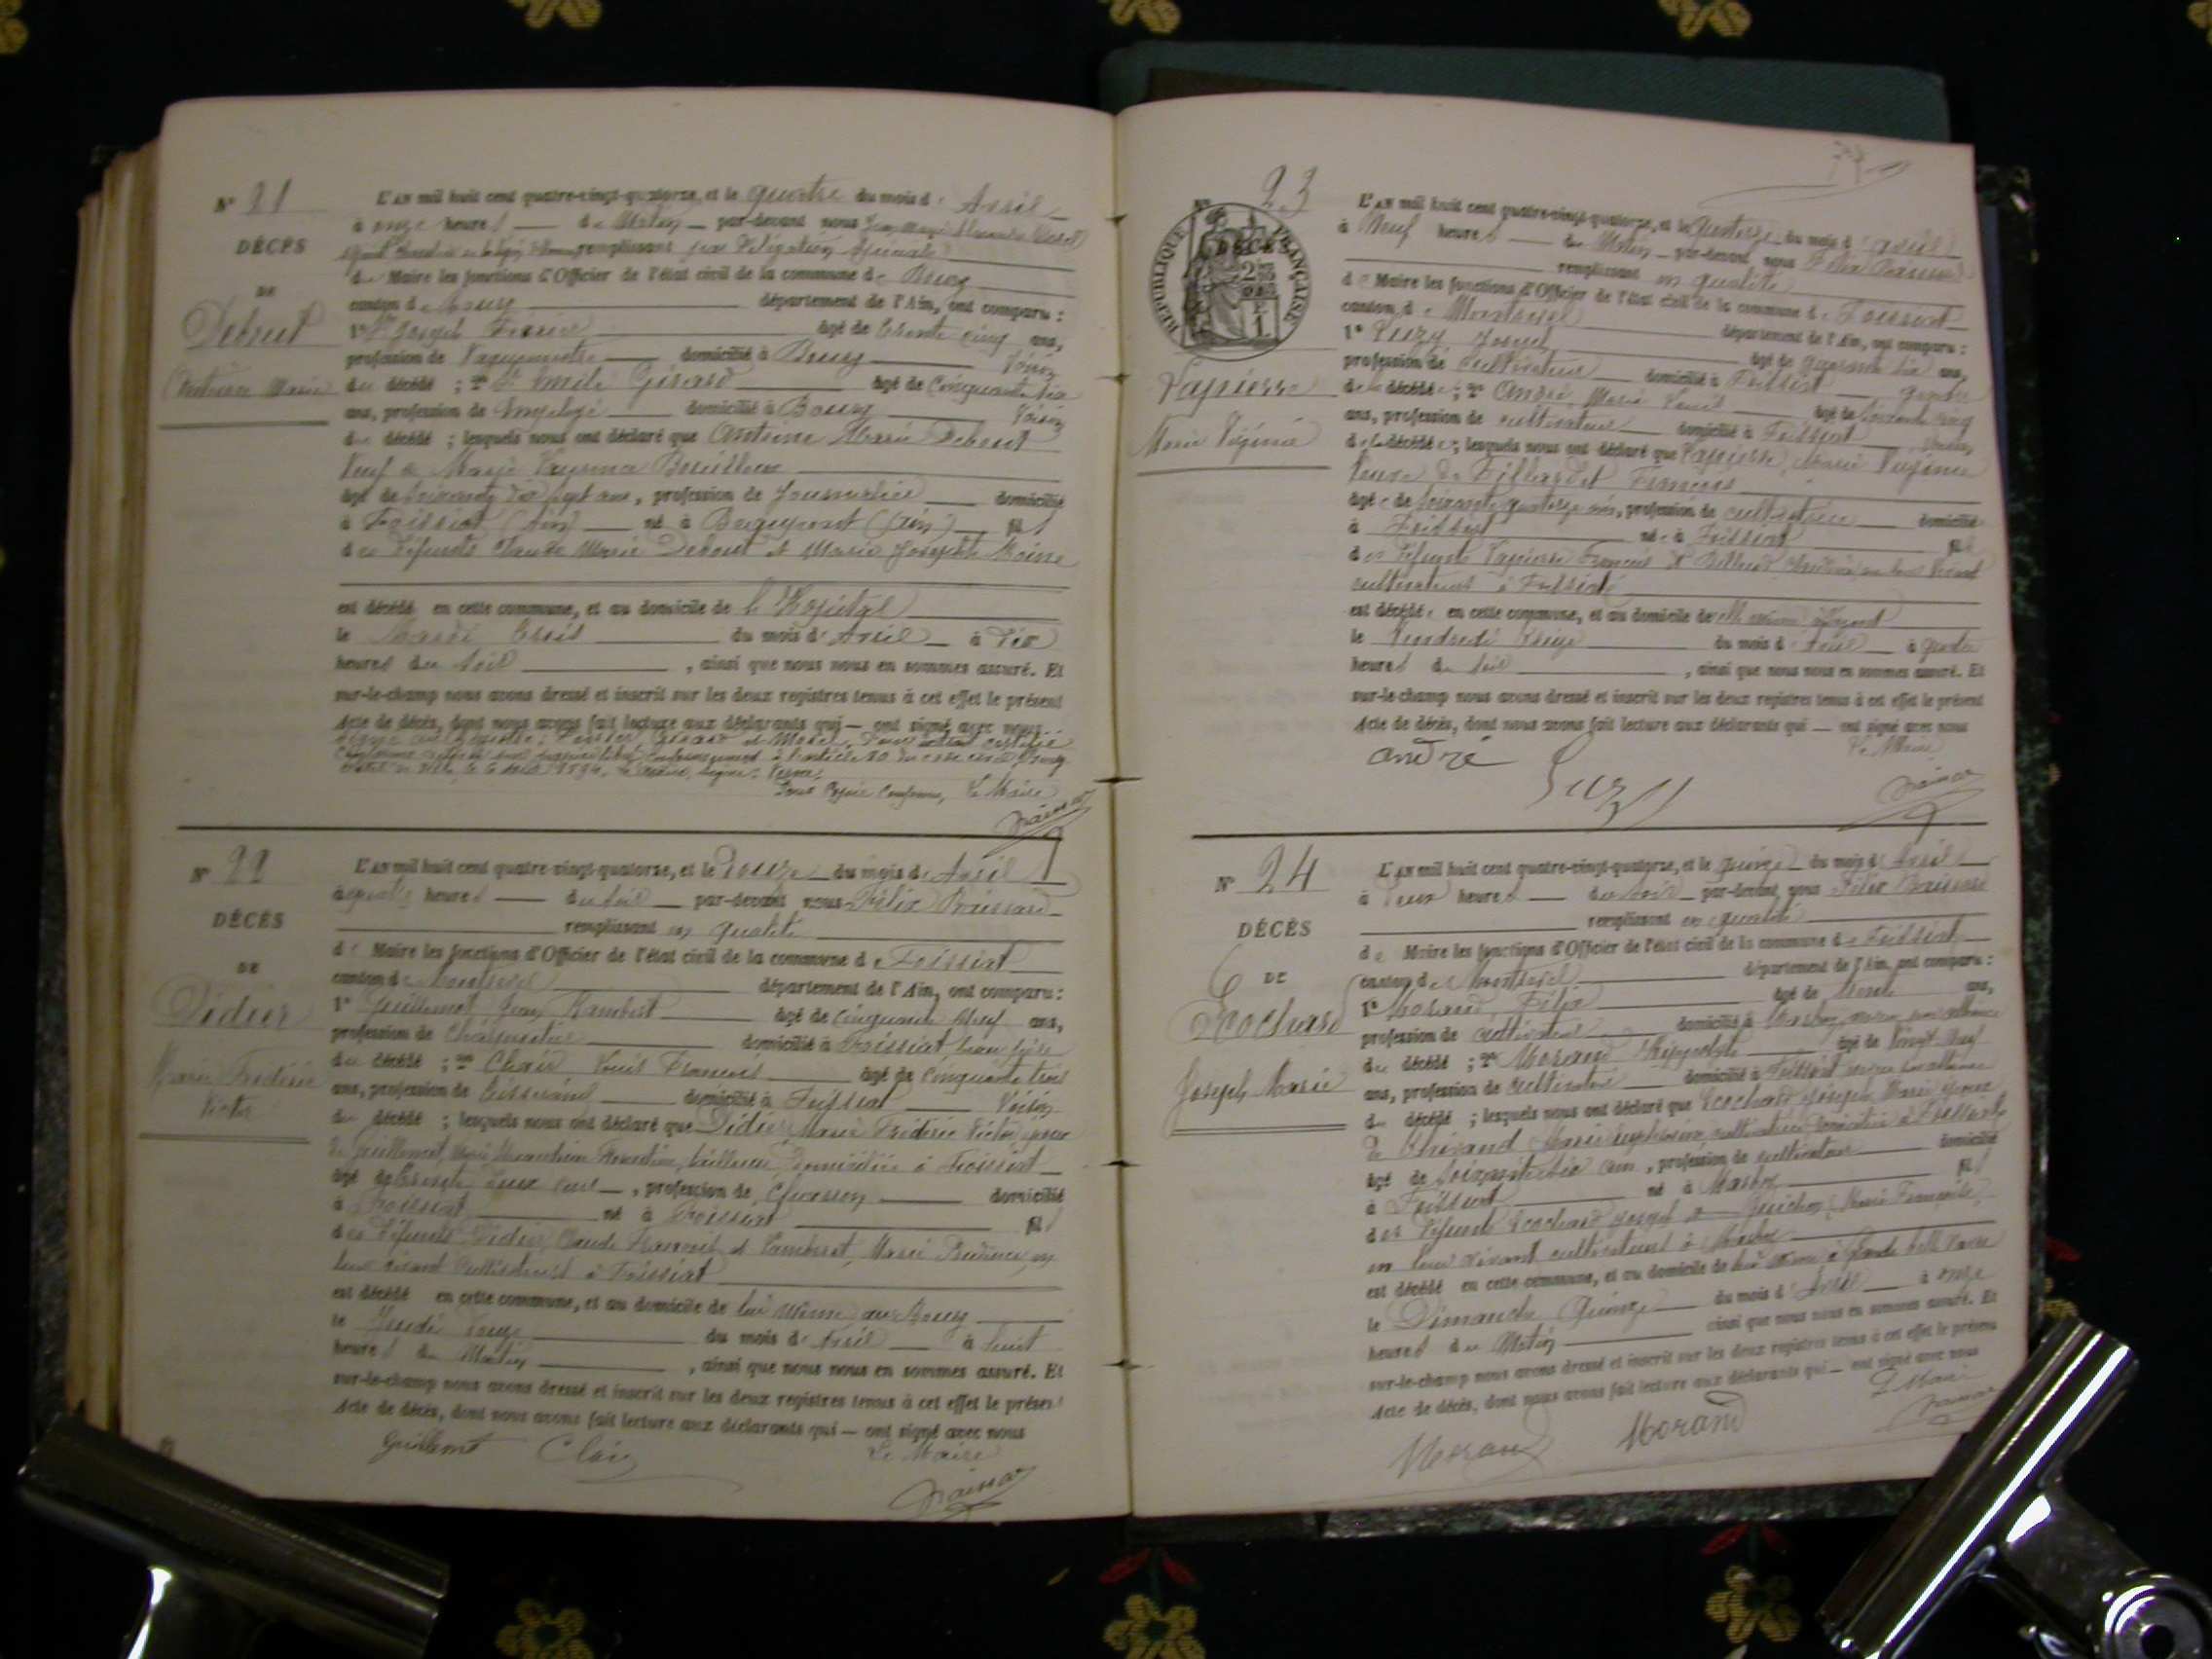 N° 21
DÉCÈS
DE
Debout
Antoine Marie
L'AN mil huit cent quatre-vingt-quatorze, et le quatre du mois d' Avril
à onze heures du Matin par-devant nous
remplissant par Délégation Spéciale
du Maire les fonctions d'Officier de l'état civil de la commune de Bourg
canton de Bourg département de l'Ain, ont comparu :
1° Joseph âgé de trente cinq ans,
profession de Vaguemestre domicilié à Bourg Voisin
du décédé ; 2° Emile Girard âgé de Cinquante
ans, profession de Employé domicilié à Bourg Voisin
du décédé ; lesquels nous ont déclaré que Antoine Marie Debout
Veuf de Marie
âgé de soixante dix sept ans, profession de Journalier domicilié
à Foissiat (Ain) né à (Ain) fils
des défunts Claude Marie Debout et Marie Josephte
est décédé en cette commune, et au domicile de l'Hopital
le Mardi trois du mois d' Avril à dix
heures du soir , ainsi que nous nous en sommes assuré. Et
sur-le-champ nous avons dressé et inscrit sur les deux registres tenus à cet effet le présent
Acte de décès, dont nous avons fait lecture aux déclarants qui — ont signé avec nous
Pour Copie Conforme, Le Maire
N° 22
DÉCÈS
DE
Didier
Marie Frédéric
Victor
L'AN mil huit cent quatre-vingt-quatorze, et le Douze du mois d' Avril
à quatre heures du soir par-devant nous Félix
remplissant en qualité
de Maire les fonctions d'Officier de l'état civil de la commune de Foissiat
canton de Montrevel département de l'Ain, ont comparu :
1° Guillemot Jean Rambert âgé de cinquante neuf ans,
profession de Charpentier domicilié à Foissiat beau père
du décédé ; 2° Clair Louis François âgé de Cinquante trois
ans, profession de Tisserand domicilié à Foissiat Voisin
du décédé ; lesquels nous ont déclaré que Didier Marie Frédéric Victor époux
de Guillemot, Marie Florentine, tailleuse, domiciliée à Foissiat
âgé de trente deux ans , profession de Charron domicilié
à Foissiat né à Foissiat fils
des défunts Didier Claude François et Marie en
leur vivant Cultivateurs à Foissiat
est décédé en cette commune, et au domicile de lui même au Bourg
le Jeudi Douze du mois d' Avril à huit
heures du Matin , ainsi que nous nous en sommes assuré. Et
sur-le-champ nous avons dressé et inscrit sur les deux registres tenus à cet effet le présent
Acte de décès, dont nous avons fait lecture aux déclarants qui — ont signé avec nous
Guillemot Clair Le Maire
N° 23
RÉPUBLIQUE FRANÇAISE
DÉCÈS
Lapierre
Marie Virginie
L'AN mil huit cent quatre-vingt-quatorze, et le quatorze du mois d' avril
à Neuf heures du Matin par-devant nous Félix
remplissant en qualité
de Maire les fonctions d'Officier de l'état civil de la commune de Foissiat
canton de Montrevel département de l'Ain, ont comparu :
1° Joseph âgé de ans,
profession de cultivateur domicilié à Foissiat gendre
de la décédée ; 2° André Marie âgé de soixante cinq
ans, profession de cultivateur domicilié à Foissiat
de la décédée ; lesquels nous ont déclaré que Lapierre, Marie Virginie
Veuve de François
âgée de soixante quatorze ans, profession de cultivatrice domiciliée
à Foissiat née à Foissiat fille
des défunts Lapierre François et
cultivateurs à Foissiat
est décédée en cette commune, et au domicile de elle même
le Vendredi treize du mois d' Avril à quatre
heures du soir , ainsi que nous nous en sommes assuré. Et
sur-le-champ nous avons dressé et inscrit sur les deux registres tenus à cet effet le présent
Acte de décès, dont nous avons fait lecture aux déclarants qui — ont signé avec nous
Le Maire
andré
N° 24
DÉCÈS
DE
Ecochard
Joseph Marie
L'AN mil huit cent quatre-vingt-quatorze, et le quinze du mois d' Avril
à Deux heures du soir par-devant nous Félix
remplissant en qualité
de Maire les fonctions d'Officier de l'état civil de la commune de Foissiat
canton de Montrevel département de l'Ain, ont comparu :
1° Morand, Félix âgé de trente ans,
profession de cultivateur domicilié à Marboz
du décédé ; 2° Morand Hippolyte âgé de Vingt neuf
ans, profession de cultivateur domicilié à Foissiat
du décédé ; lesquels nous ont déclaré que Ecochard Joseph Marie époux
de Marie cultivatrice domiciliée à Foissiat
âgé de soixante ans , profession de cultivateur domicilié
à Foissiat né à Marboz fils
des défunts Ecochard Joseph et Marie Françoise
en leur vivant cultivateurs à Marboz
est décédé en cette commune, et au domicile de lui même
le Dimanche Quinze du mois d' Avril à onze
heures du Matin ainsi que nous nous en sommes assuré. Et
sur-le-champ nous avons dressé et inscrit sur les deux registres tenus à cet effet le présent
Acte de décès, dont nous avons fait lecture aux déclarants qui — ont signé avec nous
Le Maire
Morand Morand